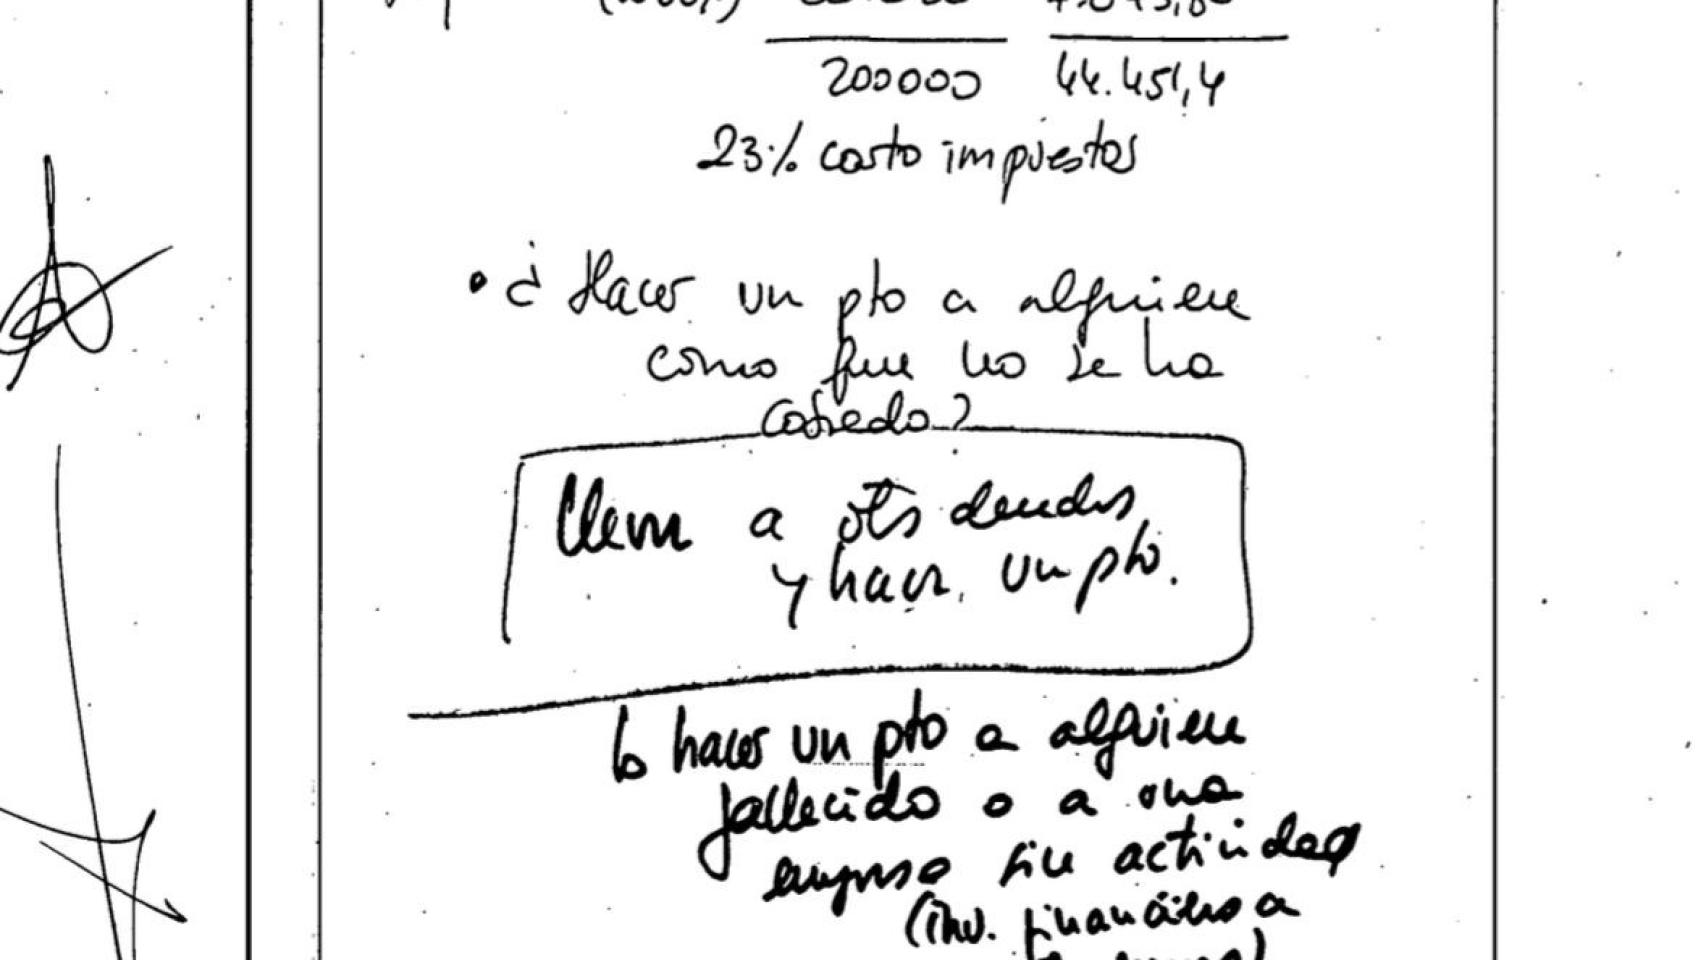 200000 44.451,4
23% costo impuestos
• ¿ Hacer un pto a alguien
como que no se ha
cobrado?
Llevar a ots deudas
y hacer un pto.
↳ hacer un pto a alguien
fallecido o a una
empresa sin actividad
(inv. financiera a